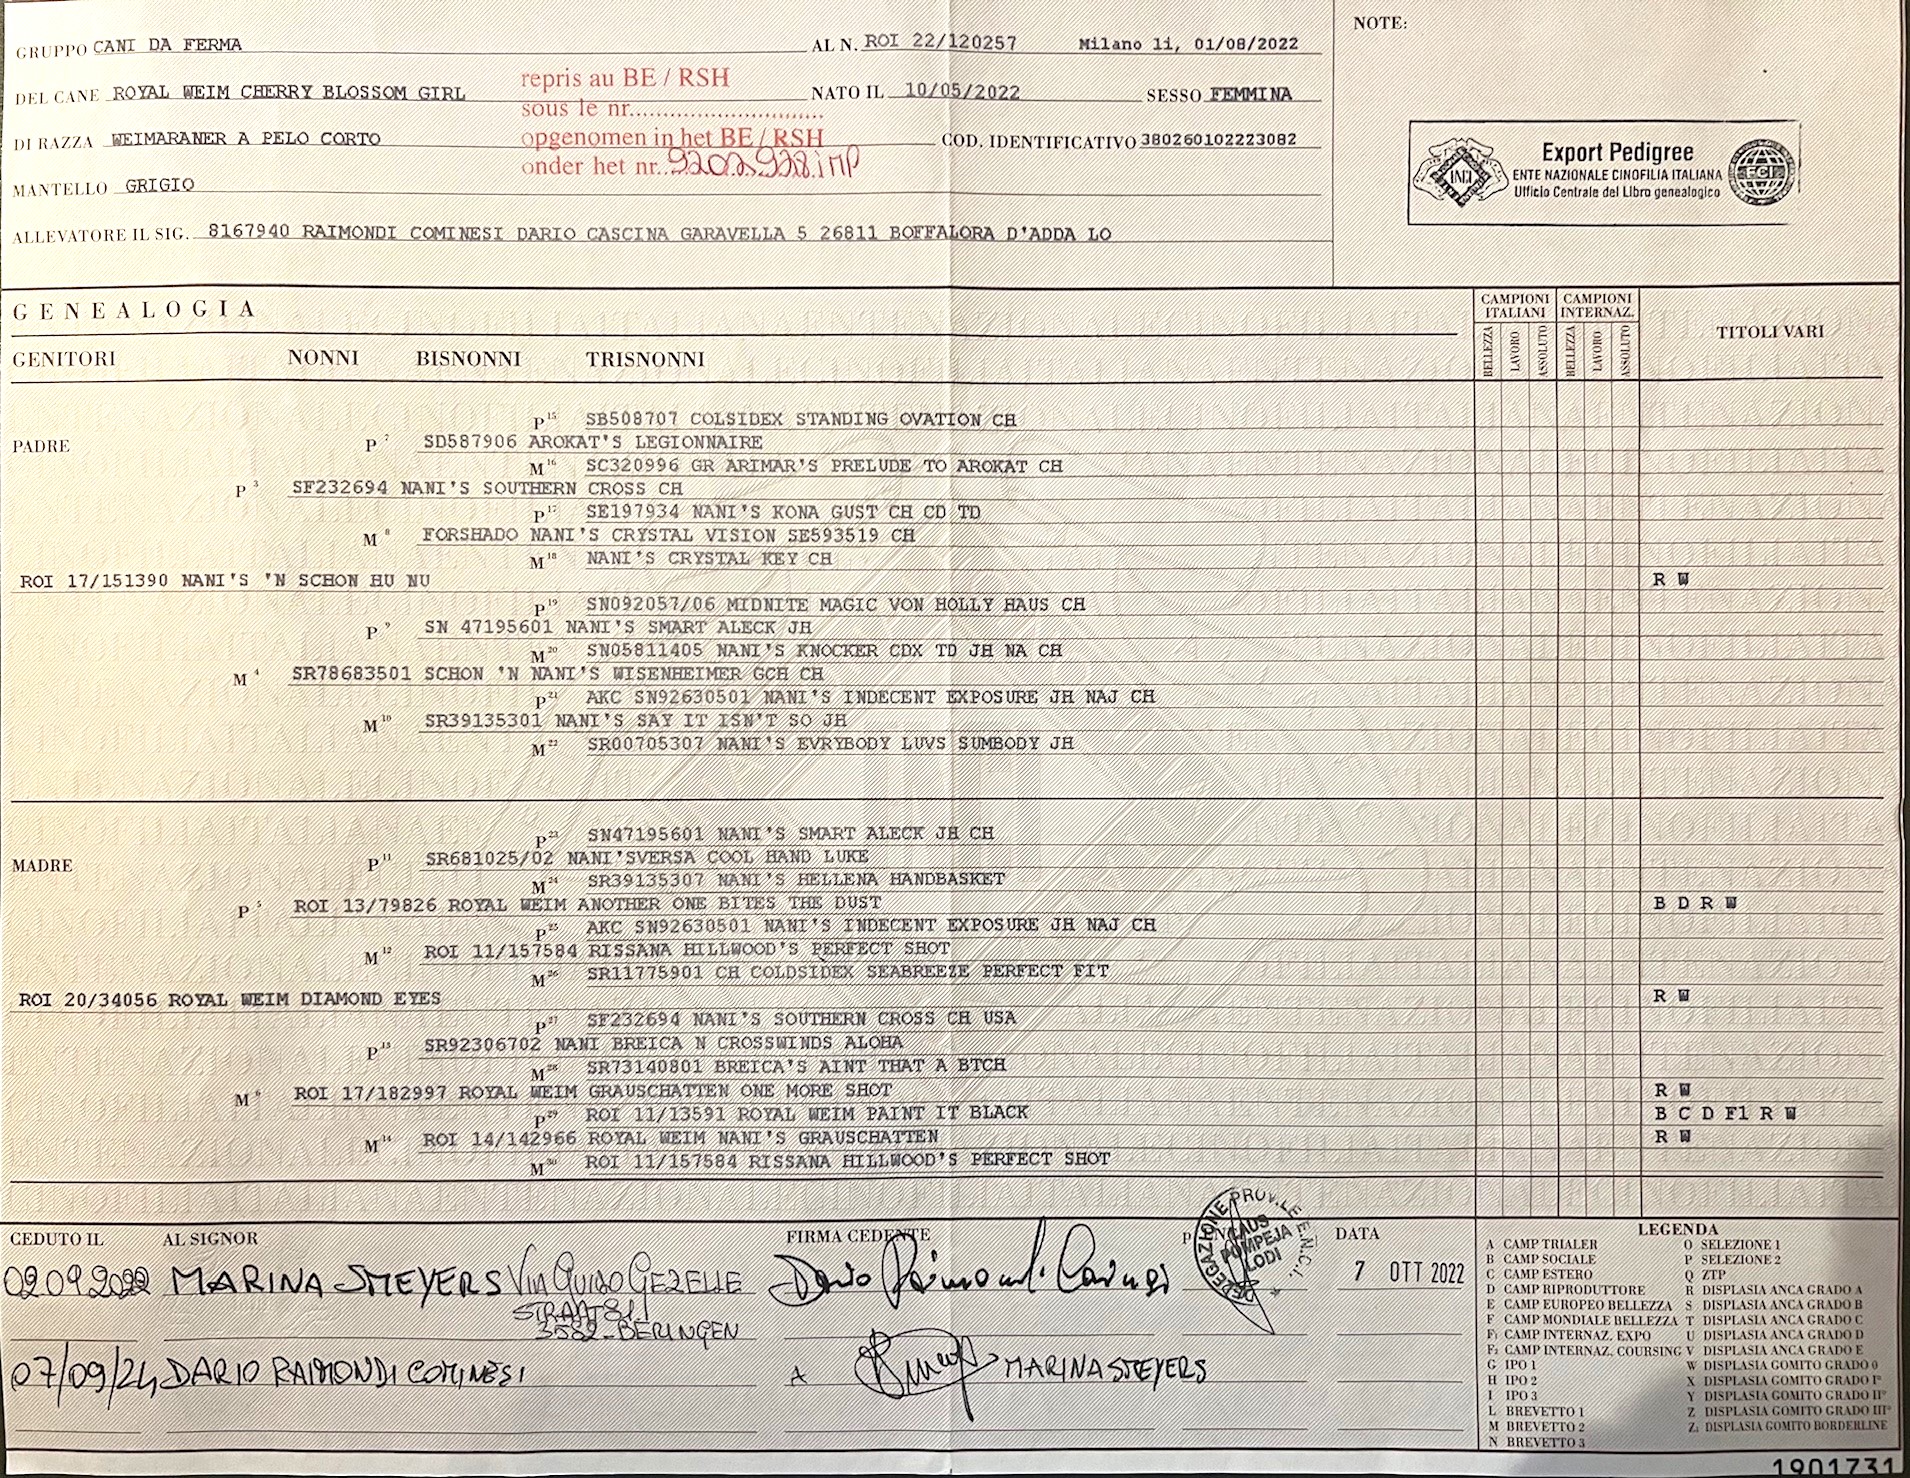 GRUPPO CANI DA FERMA AL N. ROI 22/120257 Milano li, 01/08/2022
NOTE:
DEL CANE ROYAL WEIM CHERRY BLOSSOM GIRL NATO IL 10/05/2022 SESSO FEMMINA
repris au BE / RSH
sous le nr.
DI RAZZA WEIMARANER A PELO CORTO COD. IDENTIFICATIVO 380260102223082
opgenomen in het BE / RSH
onder het nr. 9202928 imp
MANTELLO GRIGIO
ALLEVATORE IL SIG. 8167940 RAIMONDI COMINESI DARIO CASCINA GARAVELLA 5 26811 BOFFALORA D'ADDA LO
Export Pedigree
ENTE NAZIONALE CINOFILIA ITALIANA
Ufficio Centrale del Libro genealogico
ENCI
FCI
GENEALOGIA
CAMPIONI ITALIANI CAMPIONI INTERNAZ. TITOLI VARI
BELLEZZA LAVORO ASSOLUTO BELLEZZA LAVORO ASSOLUTO
GENITORI NONNI BISNONNI TRISNONNI
P 15 SB508707 COLSIDEX STANDING OVATION CH
PADRE P 7 SD587906 AROKAT'S LEGIONNAIRE
M 16 SC320996 GR ARIMAR'S PRELUDE TO AROKAT CH
P 3 SF232694 NANI'S SOUTHERN CROSS CH
P 17 SE197934 NANI'S KONA GUST CH CD TD
M 8 FORSHADO NANI'S CRYSTAL VISION SE593519 CH
M 18 NANI'S CRYSTAL KEY CH
ROI 17/151390 NANI'S 'N SCHON HU NU R W
P 19 SN092057/06 MIDNITE MAGIC VON HOLLY HAUS CH
P 9 SN 47195601 NANI'S SMART ALECK JH
M 20 SN05811405 NANI'S KNOCKER CDX TD JH NA CH
M 4 SR78683501 SCHON 'N NANI'S WISENHEIMER GCH CH
P 21 AKC SN92630501 NANI'S INDECENT EXPOSURE JH NAJ CH
M 10 SR39135301 NANI'S SAY IT ISN'T SO JH
M 22 SR00705307 NANI'S EVRYBODY LUVS SUMBODY JH
P 23 SN47195601 NANI'S SMART ALECK JH CH
MADRE P 11 SR681025/02 NANI'SVERSA COOL HAND LUKE
M 24 SR39135307 NANI'S HELLENA HANDBASKET
P 5 ROI 13/79826 ROYAL WEIM ANOTHER ONE BITES THE DUST B D R W
P 25 AKC SN92630501 NANI'S INDECENT EXPOSURE JH NAJ CH
M 12 ROI 11/157584 RISSANA HILLWOOD'S PERFECT SHOT
M 26 SR11775901 CH COLDSIDEX SEABREEZE PERFECT FIT
ROI 20/34056 ROYAL WEIM DIAMOND EYES R W
P 27 SF232694 NANI'S SOUTHERN CROSS CH USA
P 13 SR92306702 NANI BREICA N CROSSWINDS ALOHA
M 28 SR73140801 BREICA'S AINT THAT A BTCH
M 6 ROI 17/182997 ROYAL WEIM GRAUSCHATTEN ONE MORE SHOT R W
P 29 ROI 11/13591 ROYAL WEIM PAINT IT BLACK B C D F1 R W
M 14 ROI 14/142966 ROYAL WEIM NANI'S GRAUSCHATTEN R W
M 30 ROI 11/157584 RISSANA HILLWOOD'S PERFECT SHOT
CEDUTO IL AL SIGNOR FIRMA CEDENTE DATA
02 09 2022 MARINA SMEYERS VIA GUIDO GEZELLE
STRAAT 81
3582 - BERINGEN
Dario Raimondi Cominesi
DELEGAZIONE PROV.LE E.N.C.I.
POMPEJA
LODI
7 OTT 2022
07/09/24 DARIO RAIMONDI COMINESI A MARINA SMEYERS
LEGENDA
A CAMP TRIALER O SELEZIONE 1
B CAMP SOCIALE P SELEZIONE 2
C CAMP ESTERO Q ZTP
D CAMP RIPRODUTTORE R DISPLASIA ANCA GRADO A
E CAMP EUROPEO BELLEZZA S DISPLASIA ANCA GRADO B
F CAMP MONDIALE BELLEZZA T DISPLASIA ANCA GRADO C
F1 CAMP INTERNAZ. EXPO U DISPLASIA ANCA GRADO D
F2 CAMP INTERNAZ. COURSING V DISPLASIA ANCA GRADO E
G IPO 1 W DISPLASIA GOMITO GRADO 0
H IPO 2 X DISPLASIA GOMITO GRADO I°
I IPO 3 Y DISPLASIA GOMITO GRADO II°
L BREVETTO 1 Z DISPLASIA GOMITO GRADO III°
M BREVETTO 2 Z1 DISPLASIA GOMITO BORDERLINE
N BREVETTO 3
1901731